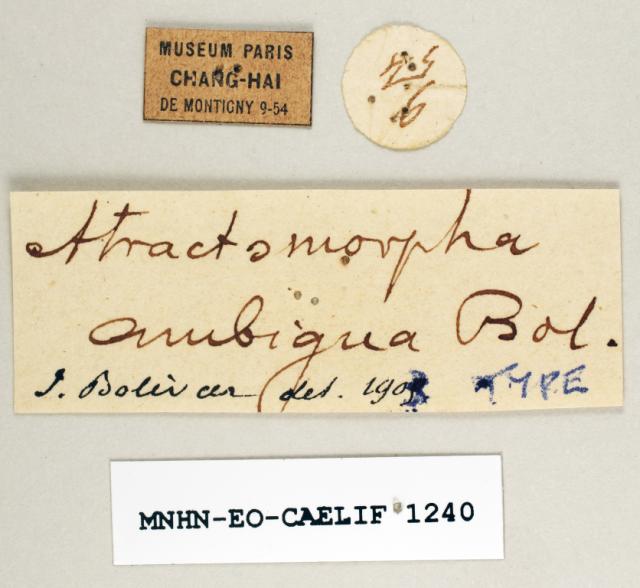 MUSEUM PARIS
CHANG-HAI
DE MONTIGNY 9-54
9
54
Atractomorpha
ambigua Bol.
I. Bolivar det. 190 TYPE
MNHN-EO-CAELIF 1240